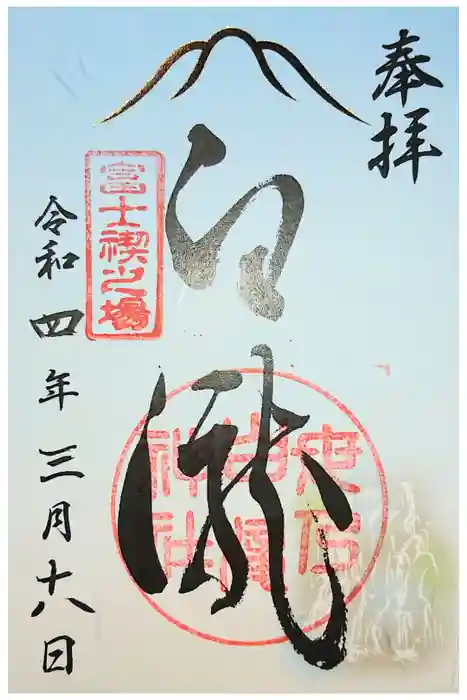 奉拝
白瀧
富士禊之場
白瀧
神社
令和四年三月十八日